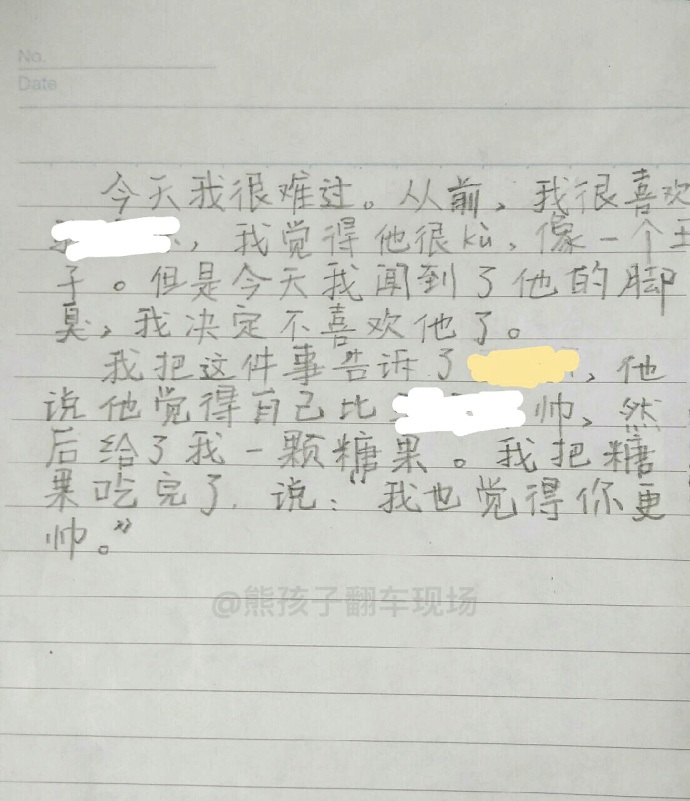 No.
Date
今天我很难过。从前，我很喜欢
，我觉得他很kù，像一个王
子。但是今天我闻到了他的脚
臭，我决定不喜欢他了。
我把这件事告诉了，他
说他觉得自己比帅，然
后给了我一颗糖果。我把糖
果吃完了，说：“我也觉得你更
帅。”
@熊孩子翻车现场